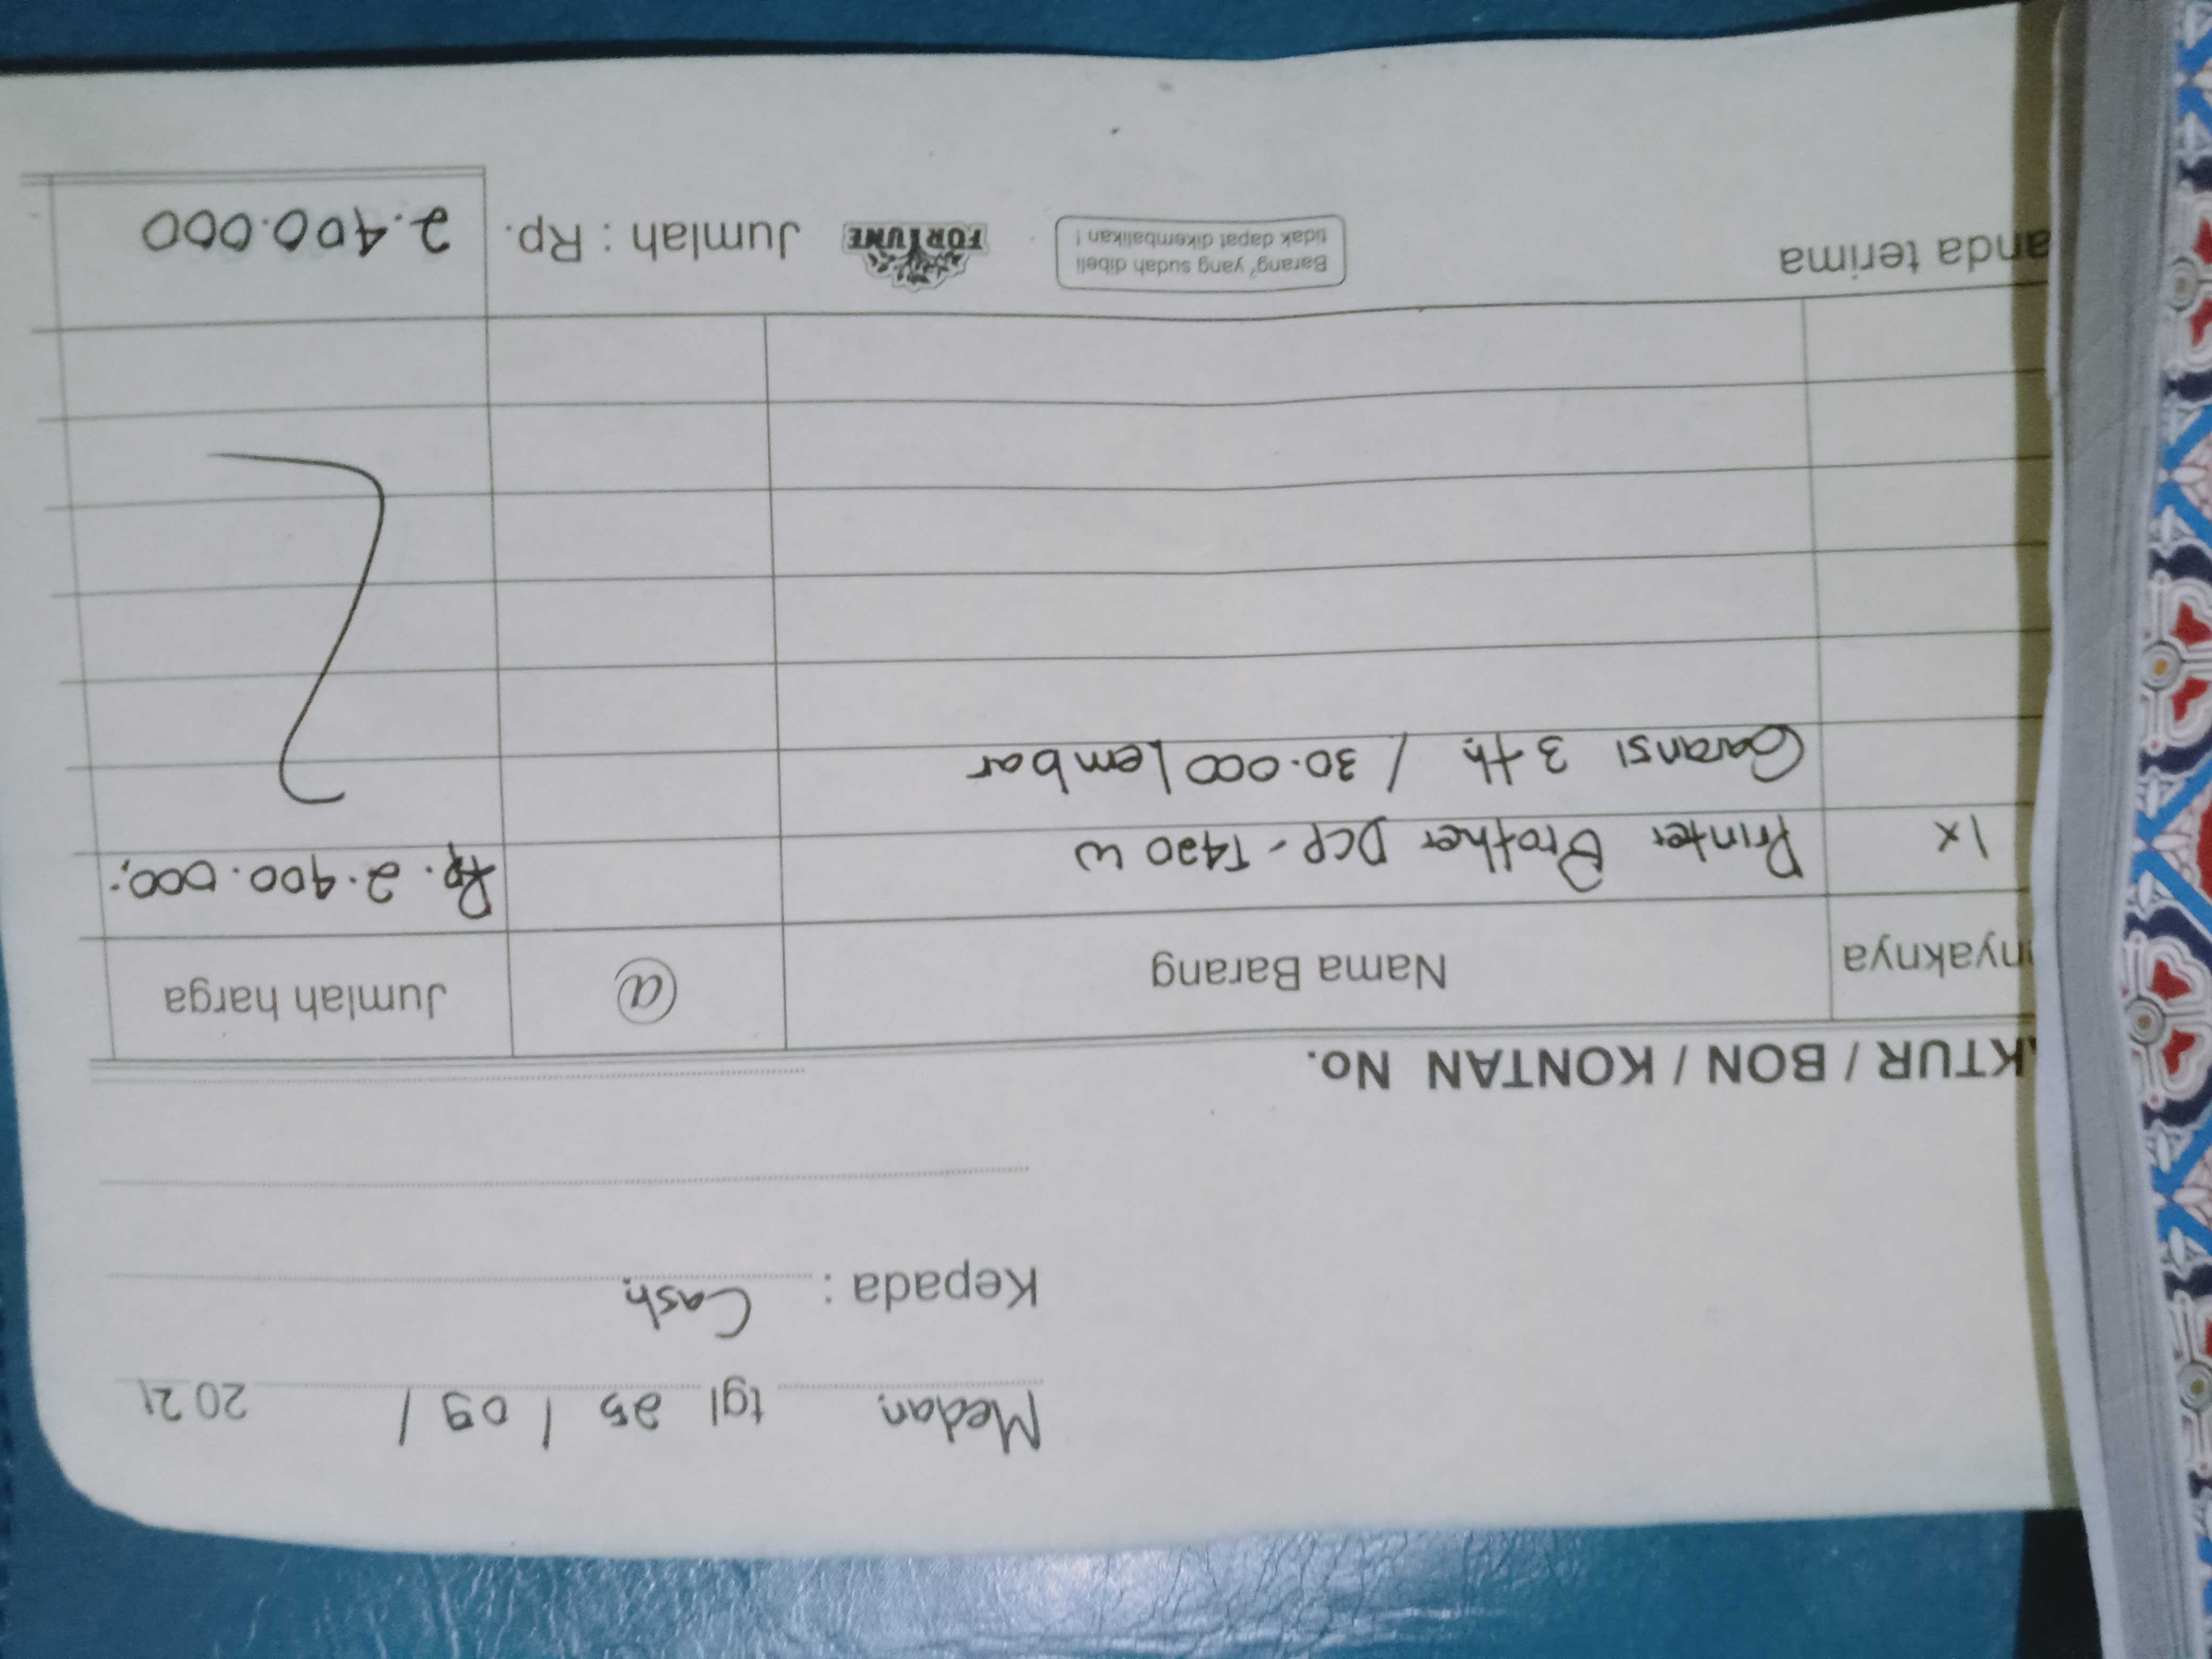 Medan, tgl 25 / 09 / 2021
Kepada : Cash.
KTUR / BON / KONTAN No.
nyaknya Nama Barang @ Jumlah harga
1x Printer Brother DCP - T420 W Rp. 2.400.000,-
Garansi 3 th / 30.000 Lembar
anda terima
Barang² yang sudah dibeli
tidak dapat dikembalikan !
FORTUNE
Jumlah : Rp. 2.400.000